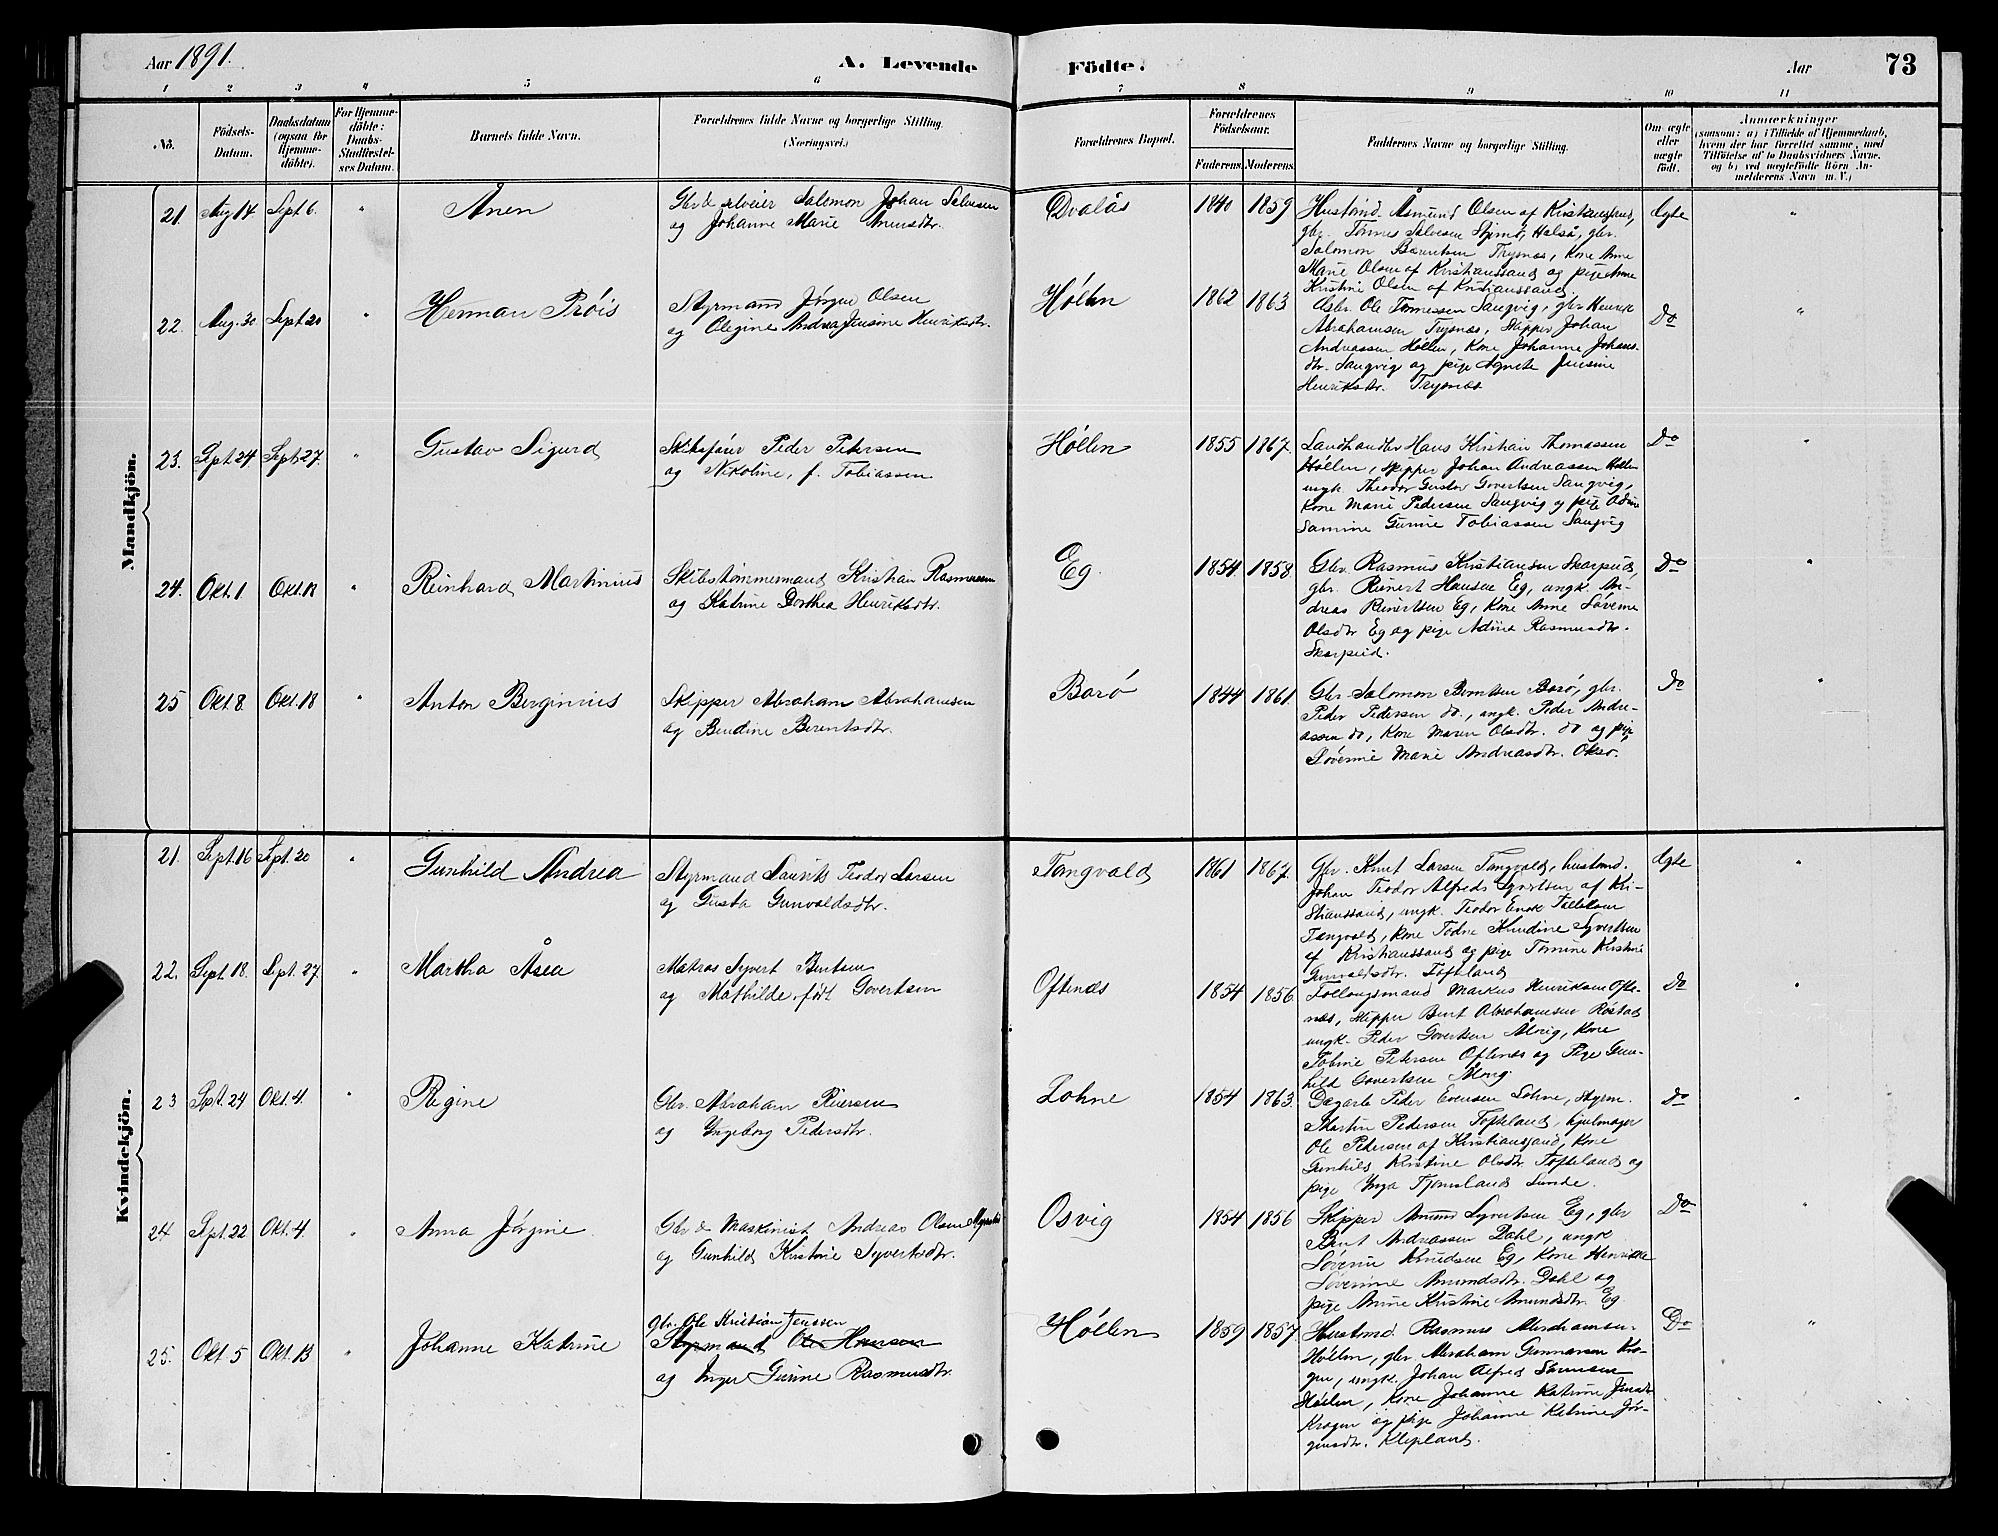 Aar 1891.
A. Levende
Födte.
Aar
73
1 2 3 4 5 6 7 8 9 10 11
No.
Födsels-Datum.
Daabsdatum (ogsaa for Hjemmedöbte).
For Hjemmedöbte: Daabs-Stadfæstelses Datum.
Barnets fulde Navn.
Forældrenes fulde Navne og borgerlige Stilling. (Næringsvei.)
Forældrenes Bopæl.
Forældrenes Födselsaar.
Faderens. Moderens.
Faddernes Navne og borgerlige Stilling.
Om ægte eller uægte födt.
Anmærkninger
(saasom: a) i Tilfælde af Hjemmedaab, hvem der har forrettet samme, med Tilföielse af to Daabsvidners Navne, og b) ved uægtefödte Börn Anmelderens Navn m. V.)
Mandkjön.
21. Aug 14 Sept 6. " Anen
Gbr & selveier Salomon Johan Salvesen
og Johanne Marie
Dvalås 1840 1859
Husmd. Åsmund Olsen af Kristianssand,
gbr. Tønnes Salvesen Halså, gbr.
Salomon Berntsen Trysnæs, kone Anne
Marie Olsen af Kristianssand og pige Anne
Kristine Olsen af Kristianssand.
Ægte "
22. Aug. 30 Sept 20 " Herman Prøis
Styrmand Jørgen Olsen
og Olegine Andrea Jensine Henriksdtr.
Høllen 1862 1863
Gbr. Ole Tønnessen Sangvig, gbr Henrik
Abrahamsen Trysnæs, Skipper Johan
Andreassen Høllen, kone Johanne Johans-
dtr. Sangvig og pige Agnete Jensine
Henriksdtr. Trysnæs
Do "
23. Sept 24 Sept 27. " Gustav Sigurd
Skibsfører Peder Petersen
og Nikoline, f. Tobiassen
Høllen 1855 1867.
Landhandler Hans Kristian Thomassen
Høllen, skipper Johan Andreassen Høllen
ungk. Theodor Gustav Govertsen Sangvig,
kone Marie Pedersen Sangvig og pige
Tobiassen Sangvig
Do "
24. Okt. 1 Okt. 18 " Reinhard Martinius
Skibstømmermand Kristian Rasmussen
og Katrine Dorthea Henriksdtr.
Eg. 1854. 1858.
Gbr. Rasmus Kristiansen Skarpeid,
gbr. Reinert Hansen Eg, ungk. An-
dreas Reinertsen Eg, kone Anne Søverine
Olsdtr Eg og pige Adine Rasmusdtr.
Skarpeid.
Do "
25 Okt. 8. Okt. 18 " Anton Berginius
Skipper Abraham Abrahamsen
og Bendine Berentsdtr.
Borø 1844 1861.
Gbr. Salomon Berntsen Borø, gbr.
Peder Pedersen do., ungk. Peder Andre-
assen do, kone Maren Olsdtr. do og pige
Søverine Marie Andreasdtr. Oksø.
Do "
Kvindekjön.
21. Sept. 16 Sept. 20 " Gunhild Andrea
Styrmand Laurits Teodor Larsen
og Gusta Gunvaldsdtr.
Tangvald 1861 1867.
Gbr. Knut Larsen Tangvald, husmd.
Johan Teodor Alfred Syvertsen af Kri-
stianssand, ungk. Teodor Enok Tallaksen
Tangvald, kone Todne Knudine Syvertsen
af Kristianssand og pige Tomine Kirstine
Gunvaldsdtr. Tofteland
Ægte "
22. Sept. 18. Sept. 27. " Martha Åsea
Matros Syvert Bentsen
og Mathilde, født Govertsen
Oftenæs 1854 1856.
Markus Henriksen Ofte-
næs, skipper Bent Abrahamsen Røstad
ungk. Peder Govertsen Åhvig, kone
Tobine Petersen Oftenæs og Pige Gun-
hild Govertsen Åhvig
Do "
23 Sept. 24 Okt. 4. " Regine
Gbr. Abraham Reiersen
og Ingeborg Pedersdtr.
Lohne 1854 1863.
Dagarb. Peder Evensen Lohne, styrm.
Martin Pedersen Tofteland, hjulmager
Ole Pedersen af Kristianssand, kone
Gunhild Kristine Olsdtr. Tofteland og
pige Inga Tjomsland Lunde.
Do "
24 Sept. 22 Okt. 4. " Anna Jørgine
Gbr & Maskinist Andreas Olsen
og Gunhild Kristine Syvertsdtr.
Osvig 1854 1856
Skipper Amund Syvertsen Eg, gbr
Bent Andreassen Dahl, ungk.
Søverin Knudsen Eg, kone Henrikke
Søverine Amundsdtr. Dahl og
pige Anne Kristine Amundsdtr. Eg.
Do "
25. Okt 5 Okt. 18 " Johanne Katrine
Gbr. Ole Kristian Jenssen
Styrmand Ole Hansen
og Inger Gurine Rasmusdtr.
Høllen 1859 1857.
Husmd. Rasmus Abrahamsen
Høllen, gbr Abraham Gunnarsen Kro-
gen, ungk. Johan Alfred
Høllen, kone Johanne Katrine Jensdtr
Krogen og pige Johanne Katrine Jør-
gensdtr. Klepland.
Do "